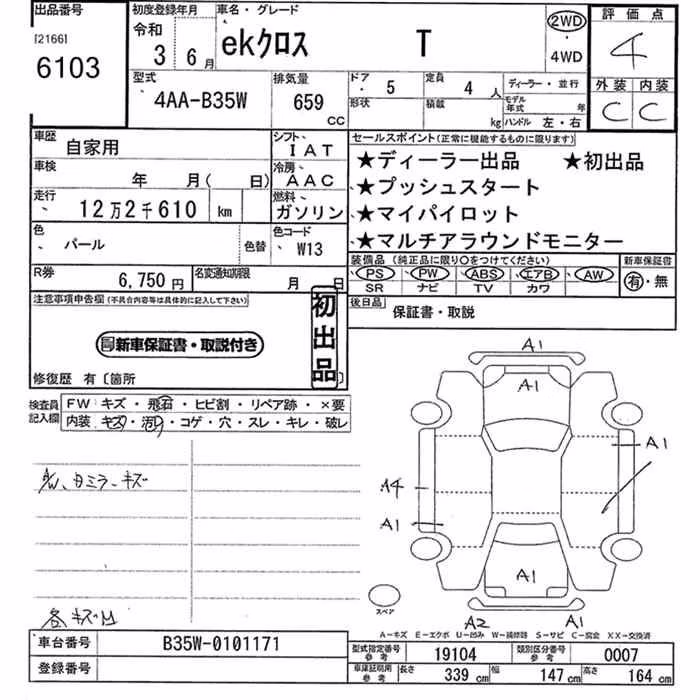 出品番号 初度登録年月 車名・グレード 評価点
[2166] 令和
6103 3 年 6 月 ekクロス T 2WD ・ 4WD 4
型式 排気量 ドア ・ 5 定員 4 人 ディーラー・並行 外装 内装
4AA-B35W 659 CC 形状 積載 kg モデル年式 年 C C
ハンドル 左・右
車歴 自家用 シフト IAT セールスポイント(正常に機能するものに限ります)
車検 年 月( 日) 冷房 AAC ★ディーラー出品 ★初出品
走行 12万2千610 km 燃料 ガソリン ★プッシュスタート
★マイパイロット
色 パール 色替 色コード W13 ★マルチアラウンドモニター
装備品 (純正品に限り○をつけてください) 新車保証書
R券 6,750円 名変通知期限 月 日 PS PW ABS エアB AW 有・無
SR ナビ TV カワ
注意事項申告欄(不具合内容等は具体的に記入して下さい) 初出品 後日品 保証書・取説
新車保証書・取説付き
修復歴 有〔箇所 〕
検査員記入欄 FW: キズ・飛石・ヒビ割・リペア跡・×要
内装: キズ・汚れ・コゲ・穴・スレ・キレ・破レ
A1
A1
ミラーキズ
A1
A4
A1
A1
スペア
各キズ
A2 A1
A-キズ E-エクボ U-凹み W-補修跡 S-サビ C-腐食 XX-交換済
車台番号 B35W-0101171 型式指定番号 参考 19104 類別区分番号 参考 0007
登録番号 車庫証明用 参考 長さ 339 cm 幅 147 cm 高さ 164 cm